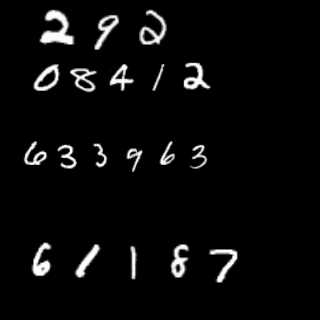 292
08412
633963
61187